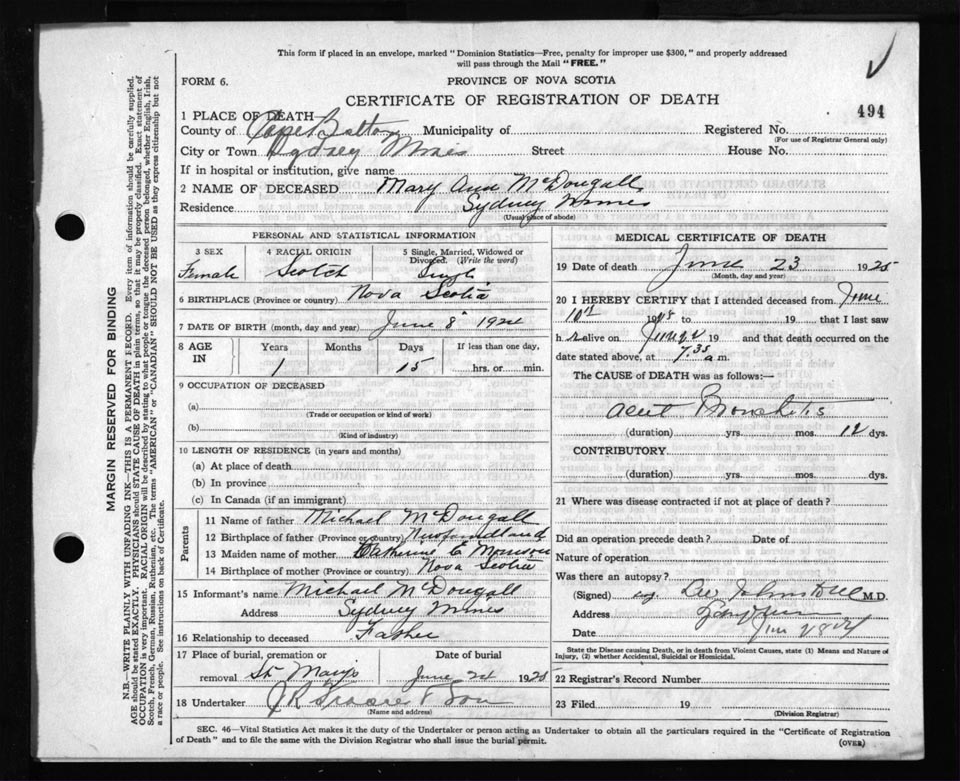 This form if placed in an envelope, marked "Dominion Statistics—Free, penalty for improper use $300," and properly addressed
will pass through the Mail "FREE."
FORM 6.
PROVINCE OF NOVA SCOTIA
CERTIFICATE OF REGISTRATION OF DEATH
494
1 PLACE OF DEATH
County of Cape Breton Municipality of Registered No.
(For use of Registrar General only)
City or Town Sydney Mines Street House No.
If in hospital or institution, give name
2 NAME OF DECEASED Mary Ann McDougall
Residence Sydney Mines
(Usual place of abode)
PERSONAL AND STATISTICAL INFORMATION
3 SEX 4 RACIAL ORIGIN 5 Single, Married, Widowed or
Divorced. (Write the word)
Female Scotch Single
6 BIRTHPLACE (Province or country) Nova Scotia
7 DATE OF BIRTH (month, day and year) June 8" 1924
8 AGE IN Years Months Days If less than one day,
1 15 hrs. or min.
9 OCCUPATION OF DECEASED
(a)
(Trade or occupation or kind of work)
(b)
(Kind of industry)
10 LENGTH OF RESIDENCE (in years and months)
(a) At place of death
(b) In province
(c) In Canada (if an immigrant)
Parents
11 Name of father Michael McDougall
12 Birthplace of father (Province or country) Newfoundland
13 Maiden name of mother Catherine C Morrison
14 Birthplace of mother (Province or country) Nova Scotia
15 Informant's name Michael McDougall
Address Sydney Mines
16 Relationship to deceased Father
17 Place of burial, cremation or Date of burial
removal St Marys June 24 1925
18 Undertaker J R & Son
(Name and address)
MEDICAL CERTIFICATE OF DEATH
19 Date of death June 23 1925
(Month, day and year)
20 I HEREBY CERTIFY that I attended deceased from June
10 19 to 19 that I last saw
h alive on 19 and that death occurred on the
date stated above, at 7.35 a m.
The CAUSE of DEATH was as follows:—
Acut Bronchitis
(duration) yrs. mos. 12 dys.
CONTRIBUTORY.
(duration) yrs. mos. dys.
21 Where was disease contracted if not at place of death?
Did an operation precede death? Date of
Nature of operation
Was there an autopsy?
(Signed) Johnstone M.D.
Address
Date
State the Disease causing Death, or in death from Violent Causes, state (1) Means and Nature of
Injury, (2) whether Accidental, Suicidal or Homicidal.
22 Registrar's Record Number
23 Filed 19
(Division Registrar)
SEC. 46—Vital Statistics Act makes it the duty of the Undertaker or person acting as Undertaker to obtain all the particulars required in the "Certificate of Registration
of Death" and to file the same with the Division Registrar who shall issue the burial permit.
(OVER)
MARGIN RESERVED FOR BINDING
N.B.—WRITE PLAINLY WITH UNFADING INK—THIS IS A PERMANENT RECORD. Every item of information should be carefully supplied.
AGE should be stated EXACTLY. PHYSICIANS should STATE CAUSE OF DEATH in plain terms, so that it may be properly classified. Exact statement of
OCCUPATION is very important. RACIAL ORIGIN will be described by stating to what people or tongue the deceased person belonged, whether English, Irish,
Scotch, French, German, Russian, Ruthenian, etc. The terms "AMERICAN" or "CANADIAN" SHOULD NOT BE USED as they express citizenship but not
a race or people. See instructions on back of Certificate.